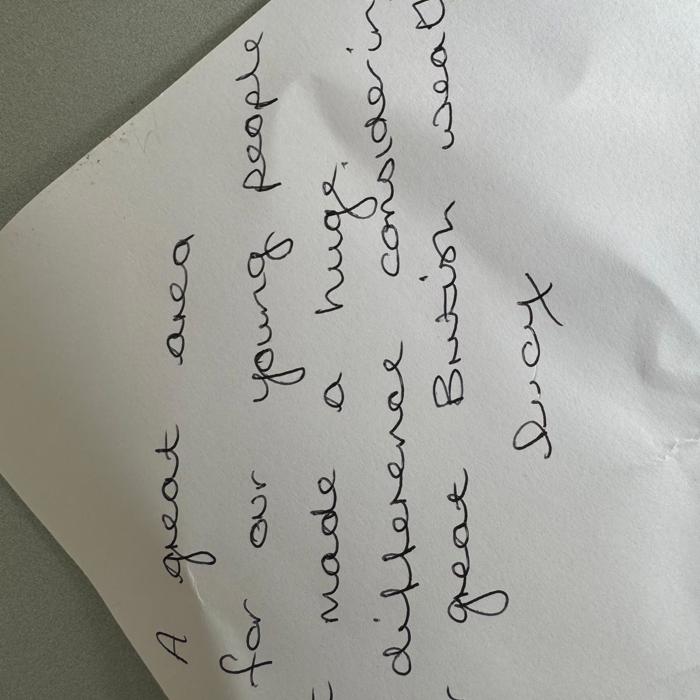 A great area
for our young people
made a huge
difference considerin
great British weat
Lucy